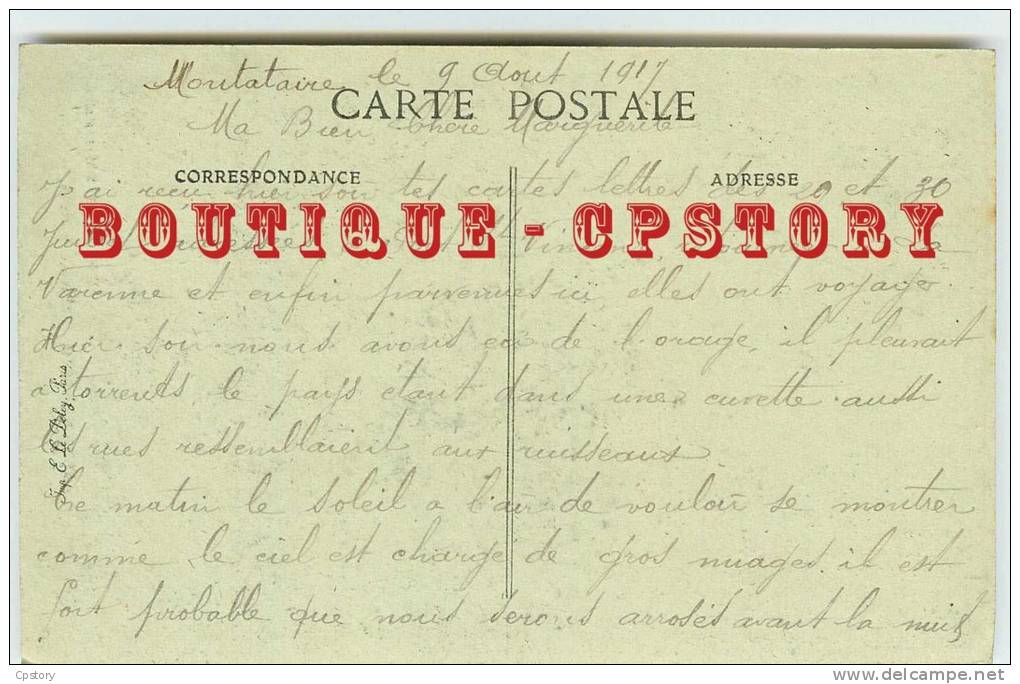 Montataire le 9 Aout 1917
CARTE POSTALE
Ma Bien Chère Marguerite
CORRESPONDANCE
ADRESSE
J'ai reçu hier soir tes cartes lettres des 29 et 30
BOUTIQUE - CPSTORY
Juillet
Varenne et enfin parvenues ici, elles ont voyagé.
Hier soir nous avons eu de l'orage, il pleuvait
a torrents, le pays étant dans une cuvette aussi
les rues ressemblaient aux ruisseaux.
Ce matin le soleil a l'air de vouloir se montrer
comme le ciel est chargé de gros nuages il est
fort probable que nous serons arrosés avant la nuit
Imp. E. Le Deley, Paris.
Cpstory
www.delcampe.net